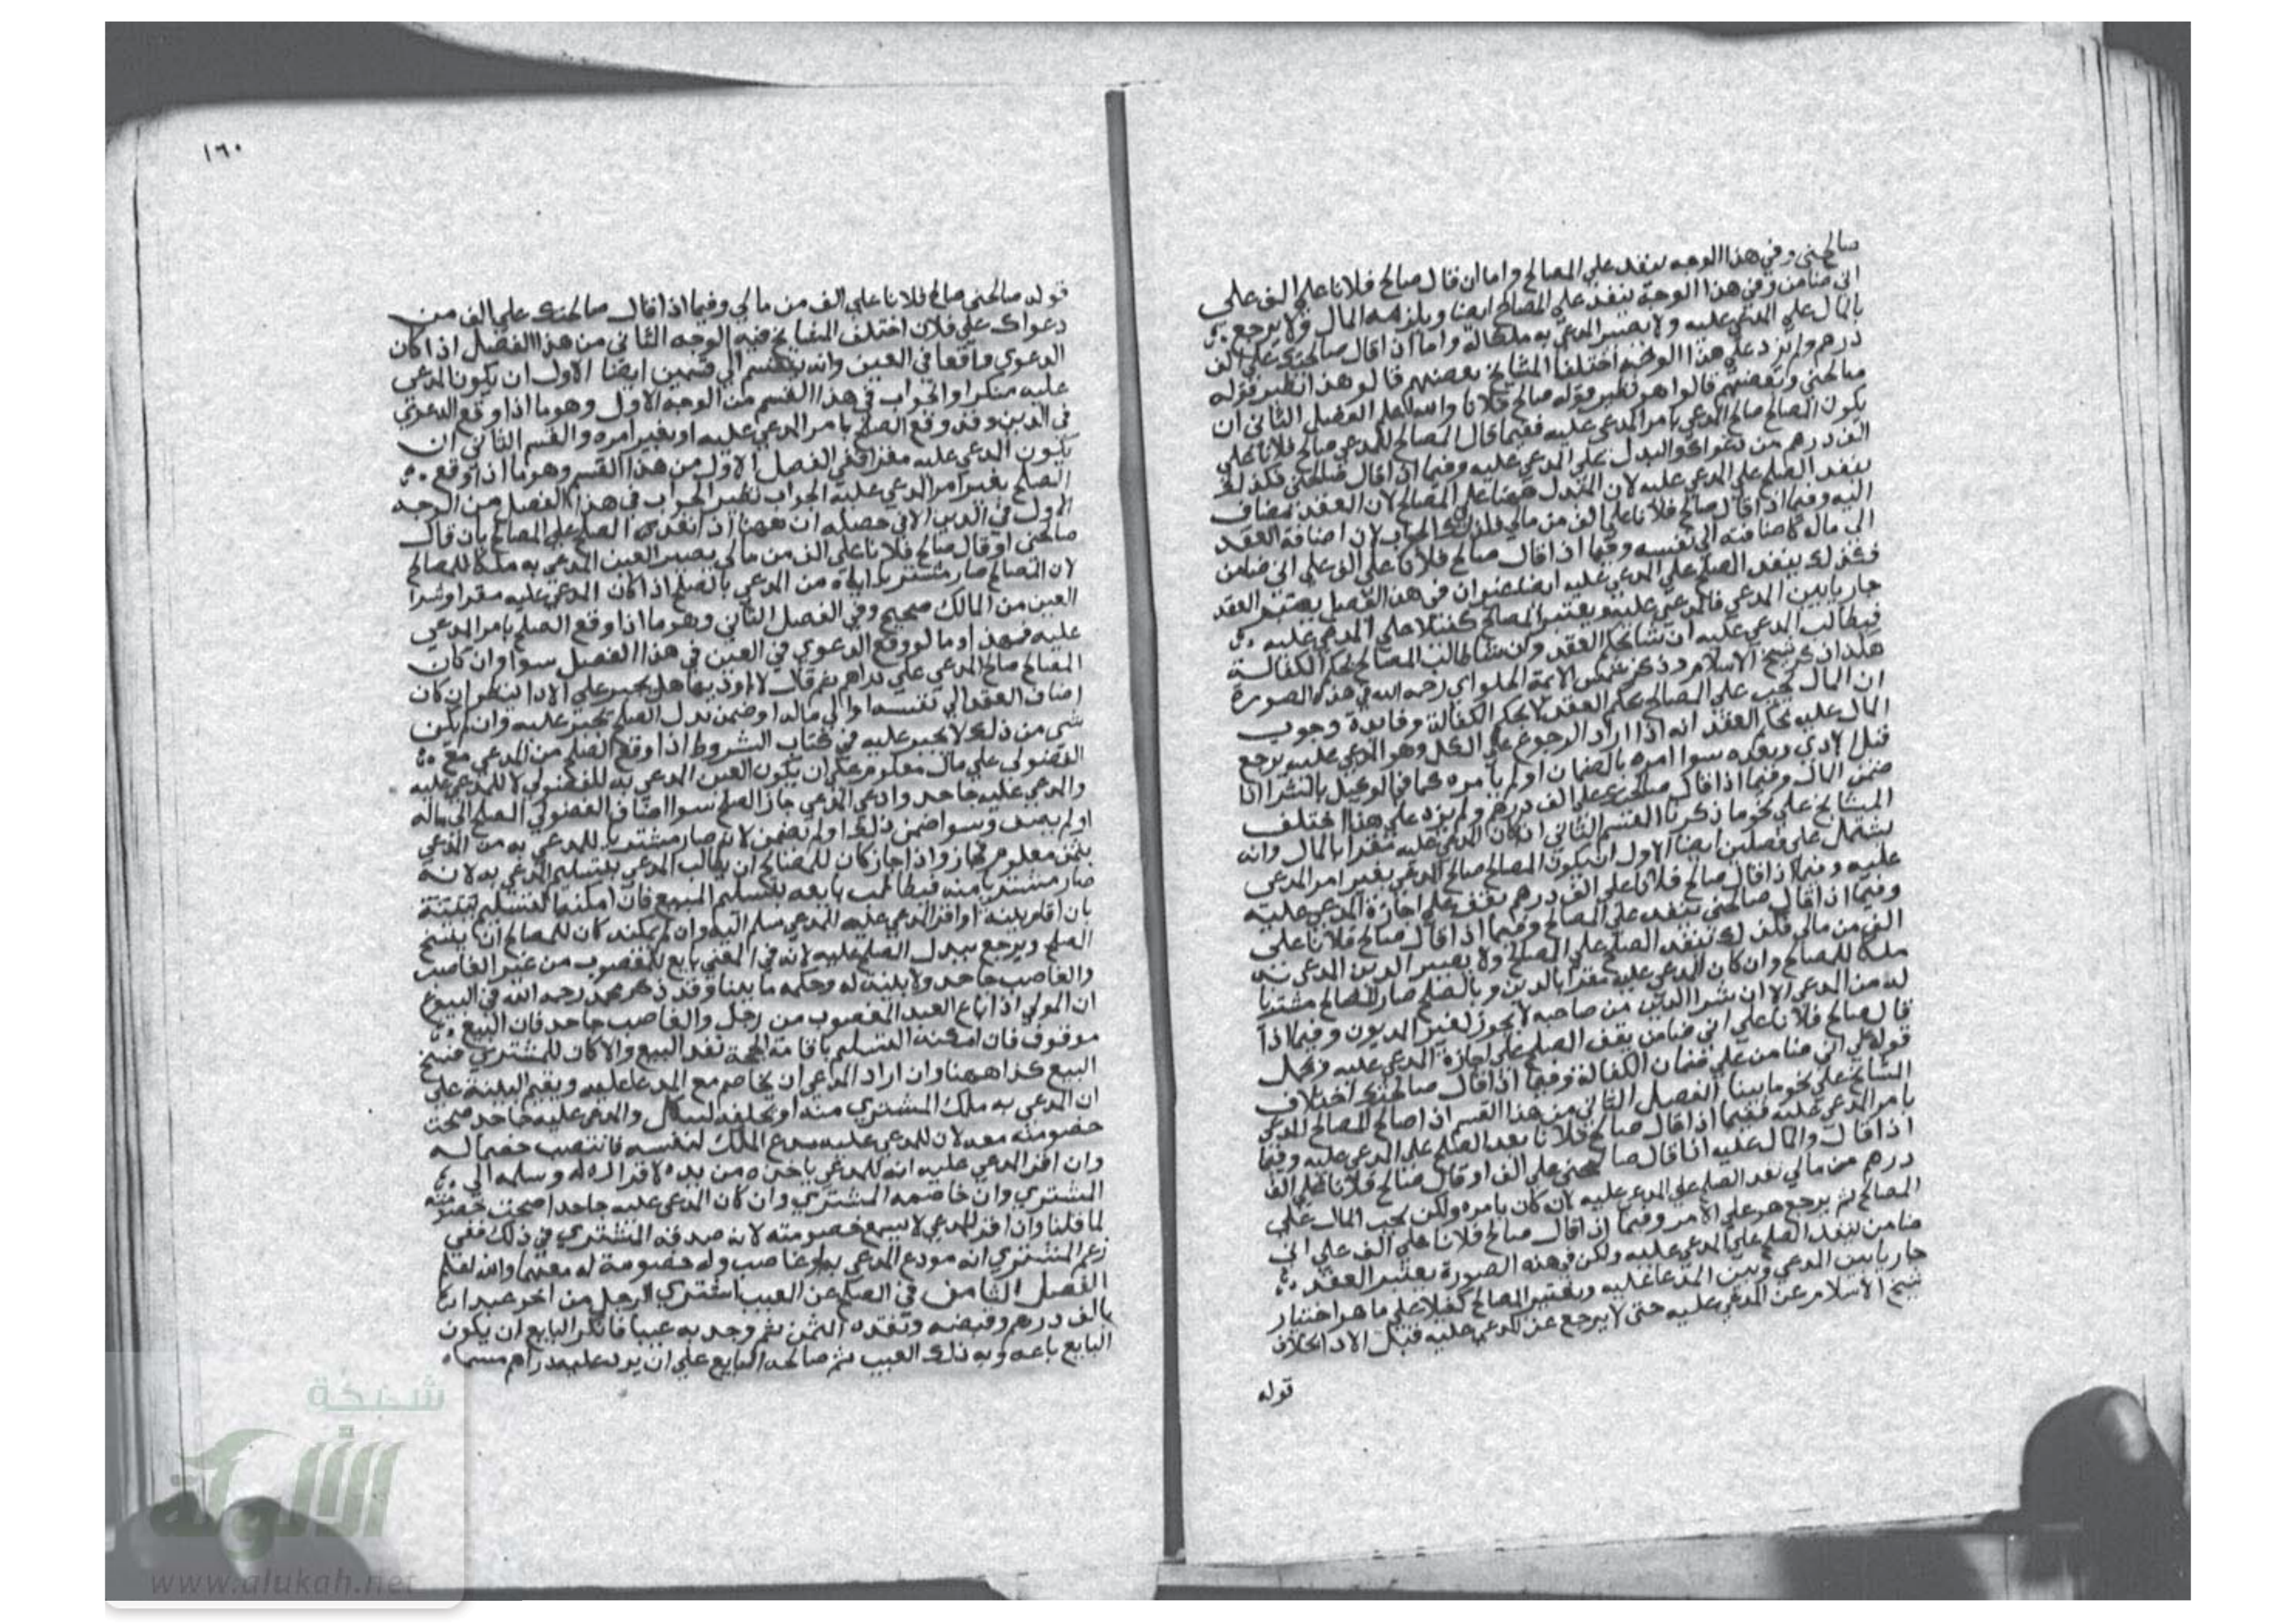 صالحني وفي هذا الوجه ينفذ علي المصالح واما ان قال صالح فلانا علي الف علي
اني ضامن وفي هذا الوجه ينفذ علي المصالح ايضا ويلزمه المال ولا يرجع
بالمال علي المدعي عليه ولا يصير المدعي به ملكا له واما اذا قال صالحتك علي الف
درهم ولم يزد علي هذا الوجه اختلف المشايخ بعضهم قالوا هذا نظير قوله
صالحني وبعضهم قالوا هو نظير قوله صالح فلانا والله اعلم الفصل الثاني ان
يكون الصالح صالح المدعي بامر المدعي عليه ففيما قال المصالح للمدعي صالح فلانا علي
الف درهم من دعواك والبدل علي المدعي عليه وفيما اذا قال صالحني فكذلك
ينفذ الصلح علي المدعي عليه لان البدل ههنا علي المصالح لان العقد مضاف
اليه وفيما اذا قال صالح فلانا علي الف من مالي فكذلك الجواب لان اضافة العقد
الي ماله كاضافته الي نفسه وفيما اذا قال صالح فلانا علي الف علي اني ضامن
فكذلك ينفذ الصلح علي المدعي عليه ايضا ان في هذا الفصل يعتبر العقد
جاريا بين المدعي والمدعي عليه ويعتبر المصالح كفيلا علي المدعي عليه
فيطالب المدعي عليه ان شا بحكم العقد وان شا طالب المصالح بحكم الكفالة
هكذا ذكر شيخ الاسلام وذكر شمس الايمة الحلواي رحمه الله في هذه الصورة
ان المال يجب علي المصالح بحكم العقد لا بحكم الكفالة وفايدة وجوب
المال عليه بحكم العقد انه اذا اراد الرجوع علي وهو المدعي عليه يرجع
قبل الادي وبعده سوا امره بالضمان او لم يامره كما في الوكيل بالشرا اذا
ضمن المال وفيما اذا قال صالحتك علي الف درهم ولم يزد علي هذا اختلف
المشايخ علي نحو ما ذكرنا القسم الثاني اذا كان المدعي عليه مقرا بالمال وانه
يشتمل علي فصلين ايضا الاول ان يكون المصالح صالح المدعي بغير امر المدعي
عليه وفيما اذا قال صالح فلانا علي الف درهم يقف علي اجازة المدعي عليه
وفيما اذا قال صالحني ينفذ علي المصالح وفيما اذا قال صالح فلانا علي
الف من مالي فكذلك ينفذ الصلح علي المصالح ولا يصير الدين المدعي به
ملكا للمصالح وان كان المدعي عليه مقرا بالدين وبالصلح صار المصالح مشتريا
له من المدعي الا ان شرا الدين من صاحبه لا يجوز لغير المديون وفيما اذا
قال صالح فلانا علي اني ضامن يقف الصلح علي اجازة المدعي عليه ويحمل
قوله علي اني ضامن علي ضمان الكفالة وفيما اذا قال صالحتك اختلاف
المشايخ علي نحو ما بينا الفصل الثاني من هذا القسم اذا صالح المصالح المدعي
بامر المدعي عليه ففيما اذا قال صالح فلانا ينفذ الصلح علي المدعي عليه وفيما
اذا قال والمال عليه اذا قال صالحني علي الف او قال صالح فلانا علي الف
درهم من مالي نفذ الصلح علي المدعي عليه لان كان بامره ولكن يجب المال علي
المصالح ثم يرجع هو علي الامر وفيما اذا قال صالح فلانا علي الف علي اني
ضامن ينفذ الصلح علي المدعي عليه ولكن في هذه الصورة يعتبر العقد
جاريا بين المدعي وبين المدعا عليه ويعتبر المصالح كفيلا علي ما هو اختيار
شيخ الاسلام عن المدعي عليه حتي لا يرجع عن المدعي عليه قبل الادا بخلاف
قوله
١٦٠
قوله صالحني صالح فلانا علي الف من مالي وفيما اذا قال صالحتك علي الف من
دعواك علي فلان اختلف المشايخ فيه الوجه الثاني من هذا الفصل اذا كان
الدعوي واقعا في العين وانه ينقسم الي قسمين ايضا الاول ان يكون المدعي
عليه منكرا والجواب في هذا القسم من الوجه الاول وهو ما اذا وقع الدعوي
في الدين وقد وقع الصلح بامر المدعي عليه او بغير امره والقسم الثاني ان
يكون المدعي عليه مقرا ففي الفصل الاول من هذا القسم وهو ما اذا وقع
الصلح بغير امر المدعي عليه الجواب نظير الجواب في هذا الفصل من الوجه
الاول في الدين الا في خصلة ان ههنا اذا نفذ الصلح علي المصالح بان قال
صالحني او قال صالح فلانا علي الف من مالي يصير العين المدعي به ملكا للمصالح
لان المصالح صار مشتريا اياه من المدعي بالصلح اذا كان المدعي عليه مقرا وشرا
العين من المالك صحيح وفي الفصل الثاني وهو ما اذا وقع الصلح بامر المدعي
عليه فهذا وما لو وقع الدعوي في العين في هذا الفصل سوا وان كان
المصالح صالح المدعي علي دراهم ثم قال لا اوديها هل يجبر علي الادا ينظر ان كان
اضاف العقد الي نفسه او الي ماله او ضمن بدل الصلح يجبر عليه وان لم يكن
شي من ذلك لا يجبر عليه في كتاب الشروط اذا وقع الصلح من المدعي مع
الفضولي علي مال معلوم علي ان يكون العين المدعي به للفضولي لا للمدعي عليه
والمدعي عليه جاحد وادعي المدعي جاز الصلح سوا اضاف الفضولي الصلح الي ماله
او لم يضف وسوا ضمن ذلك او لم يضمن لانه صار مشتريا للمدعي به من المدعي
بثمن معلوم فجاز واذا جاز كان للمصالح ان يطالب المدعي بتسليم المدعي به لانه
صار مشتريا منه فيطالب بايعه بتسليم المبيع فان امكنه التسليم ببينة
بان اقام بينة او اقر المدعي عليه للمدعي سلم اليه وان لم يمكنه كان للمصالح ان يفسخ
الصلح ويرجع ببدل الصلح عليه لانه في المعني بايع المغصوب من غير الغاصب
والغاصب جاحد ولا بينة له وحكمه ما بينا وقد ذكر محمد رحمه الله في البيوع
ان المولي اذا باع العبد المغصوب من رجل والغاصب جاحد فان البيع
موقوف فان امكنه التسليم باقامة الحجة نفذ البيع والا كان للمشتري فسخ
البيع كذا ههنا وان اراد المدعي ان يخاصم مع المدعا عليه ويقيم البينة علي
ان المدعي به ملك المشتري منه او يحلفه لينكل والمدعي عليه جاحد صحت
خصومته معه لان المدعي عليه يدع الملك لنفسه فانتصب خصما له
وان اقر المدعي عليه انه للمدعي ياخذه من يده لاقراره له وسلمه الي
المشتري وان خاصمه المشتري وان كان المدعي عليه جاحدا صحت خصومته
لما قلنا وان اقر للمدعي لا يسمع خصومته لانه صدقه المشتري في ذلك ففي
زعم المشتري انه مودع المدعي به او غاصب ولا خصومة له معهما والله اعلم
الفصل الثامن في الصلح عن العيب اشتري الرجل من اخر عبدا
بالف درهم وقبضه ونقده الثمن ثم وجد به عيبا فانكر البايع ان يكون
البايع باعه وبه ذلك العيب ثم صالحه البايع علي ان يرد عليه دراهم مسماه
شبكة
الألوكة
www.alukah.net